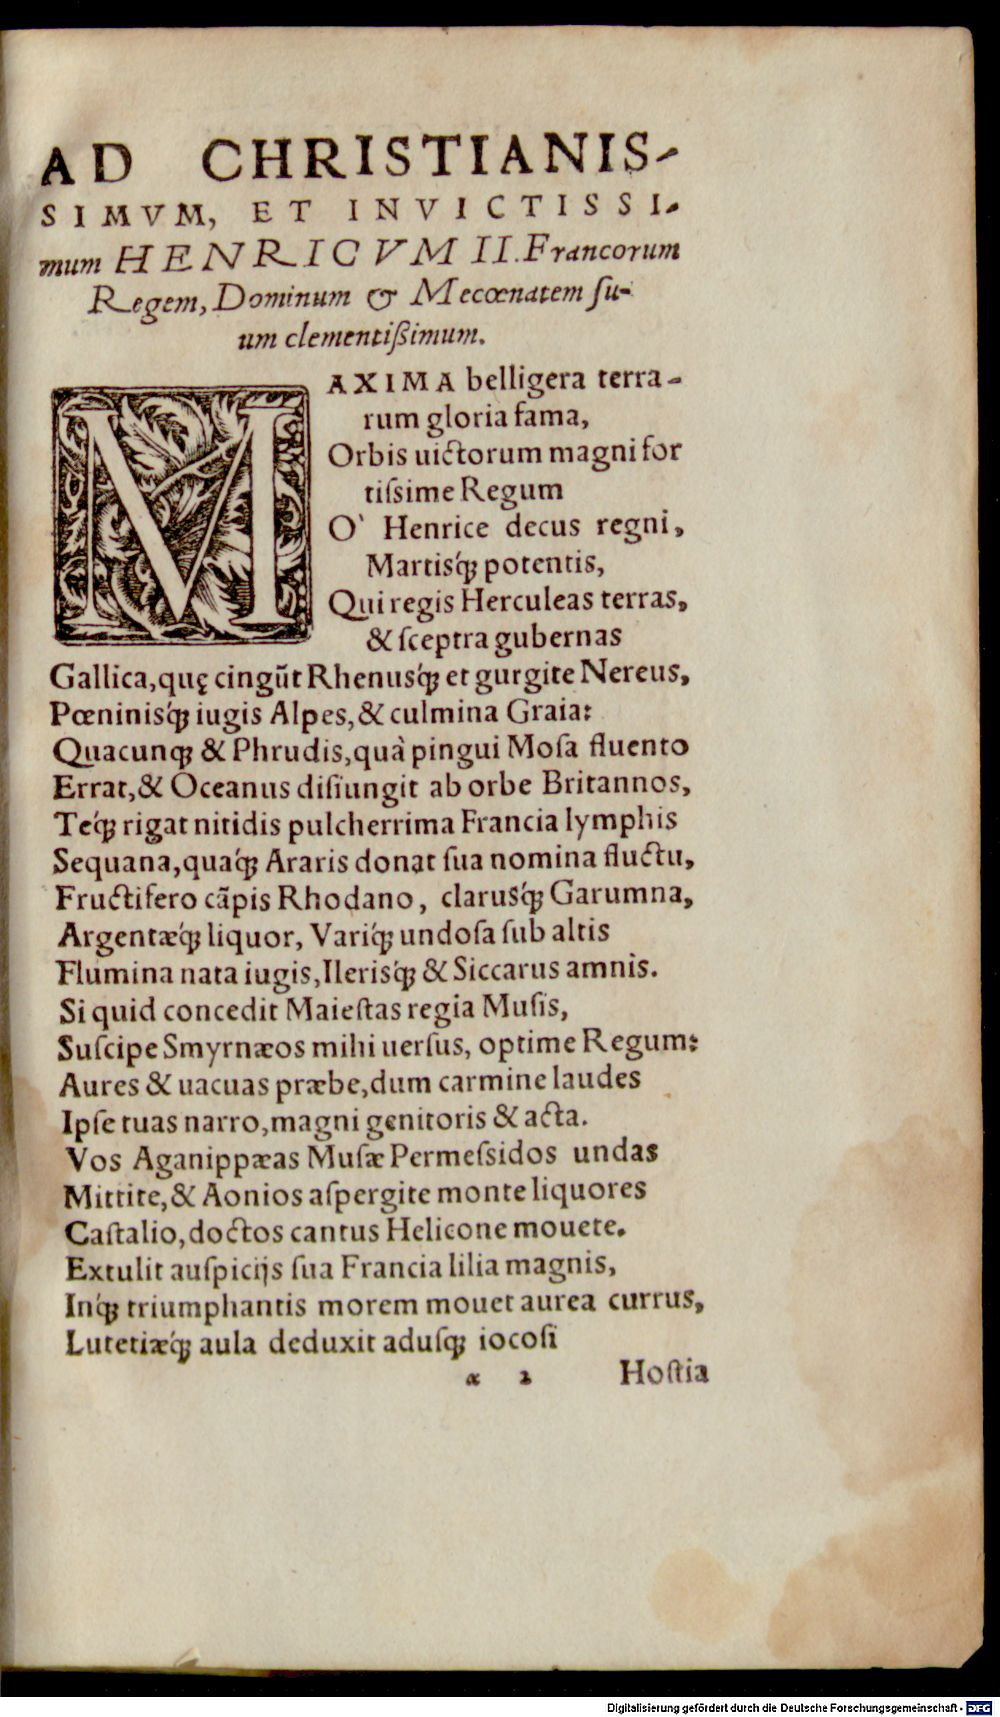 AD CHRISTIANIS-
SIMVM, ET INVICTISSI-
mum HENRICVM II. Francorum
Regem, Dominum & Mecœnatem su-
um clementißimum.
MAXIMA belligera terra-
rum gloria fama,
Orbis uictorum magni for
tiſsime Regum
O` Henrice decus regni,
Martisq́; potentis,
Qui regis Herculeas terras,
& ſceptra gubernas
Gallica, quę cingūt Rhenusq́; et gurgite Nereus,
Pœninisq́; iugis Alpes, & culmina Graia:
Quacunq; & Phrudis, quà pingui Moſa fluento
Errat, & Oceanus diſiungit ab orbe Britannos,
Teq́; rigat nitidis pulcherrima Francia lymphis
Sequana, quaq́; Araris donat ſua nomina fluctu,
Fructifero cāpis Rhodano, clarusq́; Garumna,
Argentæq́; liquor, Variq́; undoſa ſub altis
Flumina nata iugis, Ilerisq́; & Siccarus amnis.
Si quid concedit Maieſtas regia Muſis,
Suſcipe Smyrnæos mihi uerſus, optime Regum:
Aures & uacuas præbe, dum carmine laudes
Ipſe tuas narro, magni genitoris & acta.
Vos Aganippæas Muſæ Permeſsidos undas
Mittite, & Aonios aſpergite monte liquores
Caſtalio, doctos cantus Helicone mouete.
Extulit auſpicijs ſua Francia lilia magnis,
Inq́; triumphantis morem mouet aurea currus,
Lutetiæq́; aula deduxit aduſq; iocoſi
α 2 Hoſtia
Digitalisierung gefördert durch die Deutsche Forschungsgemeinschaft - DFG